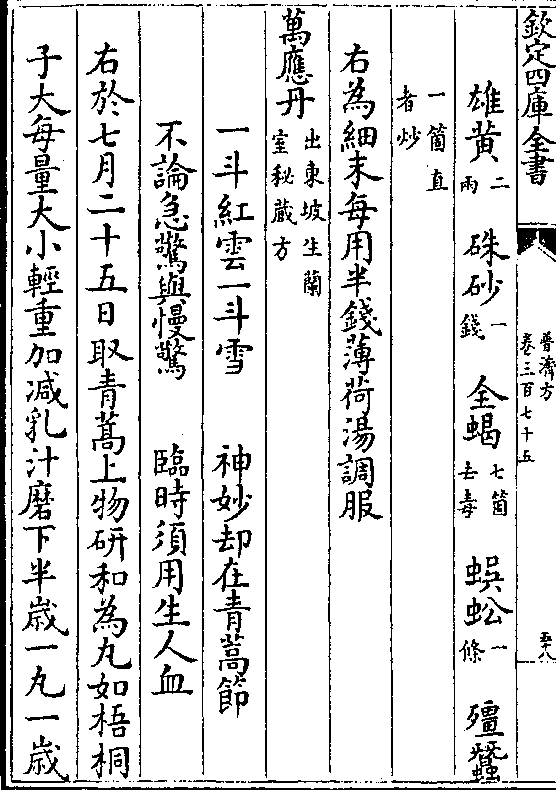 欽定四庫全書
普濟方
卷三百七十五
五十八
雄黃二兩 硃砂一錢 全蝎七箇去毒 蜈蚣一條 殭蠶
一箇直者炒
右為細末每用半錢薄荷湯調服
萬應丹出東坡生蘭室秘蔵方
一斗紅雲一斗雪 神妙却在青蒿節
不論急驚與慢驚 臨時須用生人血
右於七月二十五日取青蒿上物研和為丸如梧桐
子大每量大小輕重加减乳汁磨下半歳一丸一歳